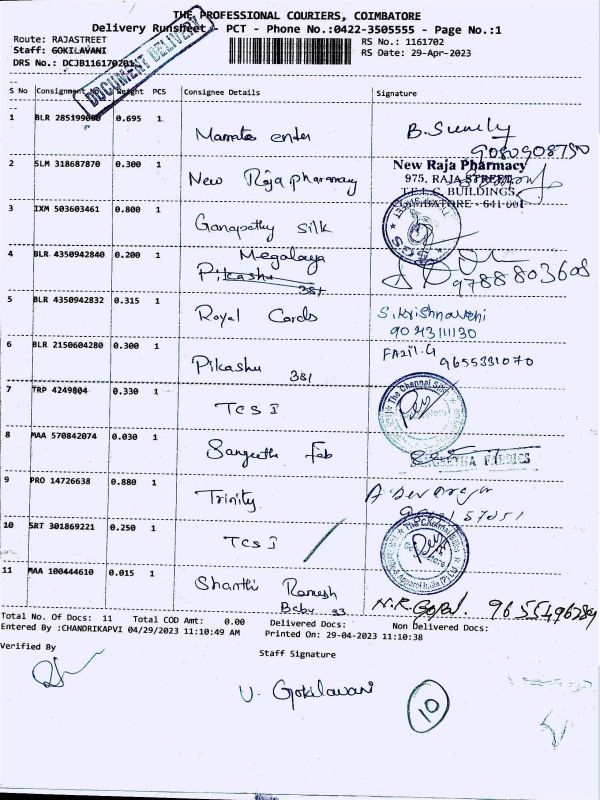 THE PROFESSIONAL COURIERS, COIMBATORE
Delivery Runsheet - PCT - Phone No.:0422-3505555 - Page No.:1
Route: RAJASTREET
RS No.: 1161702
Staff: GOKILAVANI
RS Date: 29-Apr-2023
DRS No.: DCJB116170201
DOCUMENT DELIVERY
S No Consignment No Weight PCS Consignee Details Signature
1 BLR 0.695 1
B. Sumily
9080908750
2 SLM 318687870 0.300 1 New Raja pharmacy
New Raja Pharmacy
975, RAJA STREET
T.E.L.C. BUILDINGS,
COIMBATORE - 641 001
3 IXM 503603461 0.800 1 Ganapathy Silk
4 BLR 4350942840 0.200 1 Megalaya
Pikashu
381
9788803608
5 BLR 4350942832 0.315 1 Royal Cards
S.Krishnaveni
9043111130
6 BLR 2150604280 0.300 1 Pikashu 381
FAZIL.G 9655331070
7 TRP 4249804 0.330 1 TCS I
8 MAA 570842074 0.030 1 Sangeetha Fab
SANGEETHA FABRICS
9 PRO 14726638 0.880 1 Trinity
A. Devaraj
10 SRT 301869221 0.250 1 TCS I
11 MAA 100444610 0.015 1 Shanthi Ramesh
Baby 33
N.R. Gopal.
Total No. Of Docs: 11 Total COD Amt: 0.00 Delivered Docs: Non Delivered Docs:
Entered By :CHANDRIKAPVI 04/29/2023 11:10:49 AM Printed On: 29-04-2023 11:10:38
Verified By
Staff Signature
V. Gokilavani
10